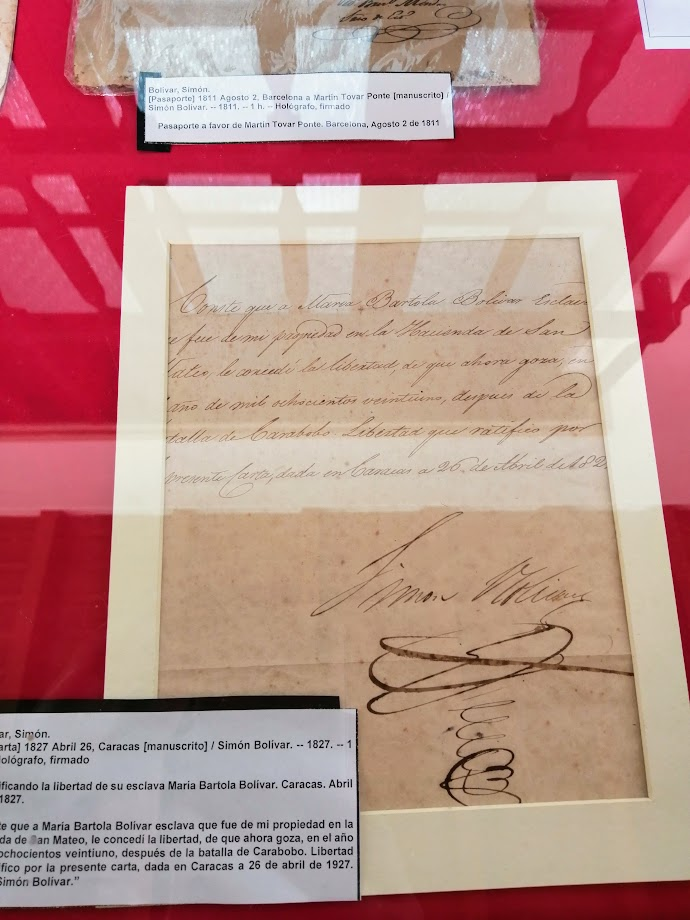 Bolívar, Simón.
[Pasaporte] 1811 Agosto 2, Barcelona a Martín Tovar Ponte [manuscrito] /
Simón Bolívar. -- 1811. -- 1 h. – Hológrafo, firmado
Pasaporte a favor de Martín Tovar Ponte. Barcelona, Agosto 2 de 1811
Conste que a María Bartola Bolivar Esclav
e fue de mi propiedad en la Hacienda de San
ateo, le concedí la libertad, de que ahora goza, en
año de mil ochocientos veintiuno, despues de la
talla de Carabobo Libertad que ratifico por
presente Carta, dada en Caracas a 26 de Abril de 182
Simon Bolivar
ar, Simón.
arta] 1827 Abril 26, Caracas [manuscrito] / Simón Bolívar. -- 1827. -- 1
ológrafo, firmado
ificando la libertad de su esclava María Bartola Bolívar. Caracas. Abril
1827.
te que a María Bartola Bolívar esclava que fue de mi propiedad en la
da de San Mateo, le concedí la libertad, de que ahora goza, en el año
ochocientos veintiuno, después de la batalla de Carabobo. Libertad
fico por la presente carta, dada en Caracas a 26 de abril de 1927.
Simón Bolívar."